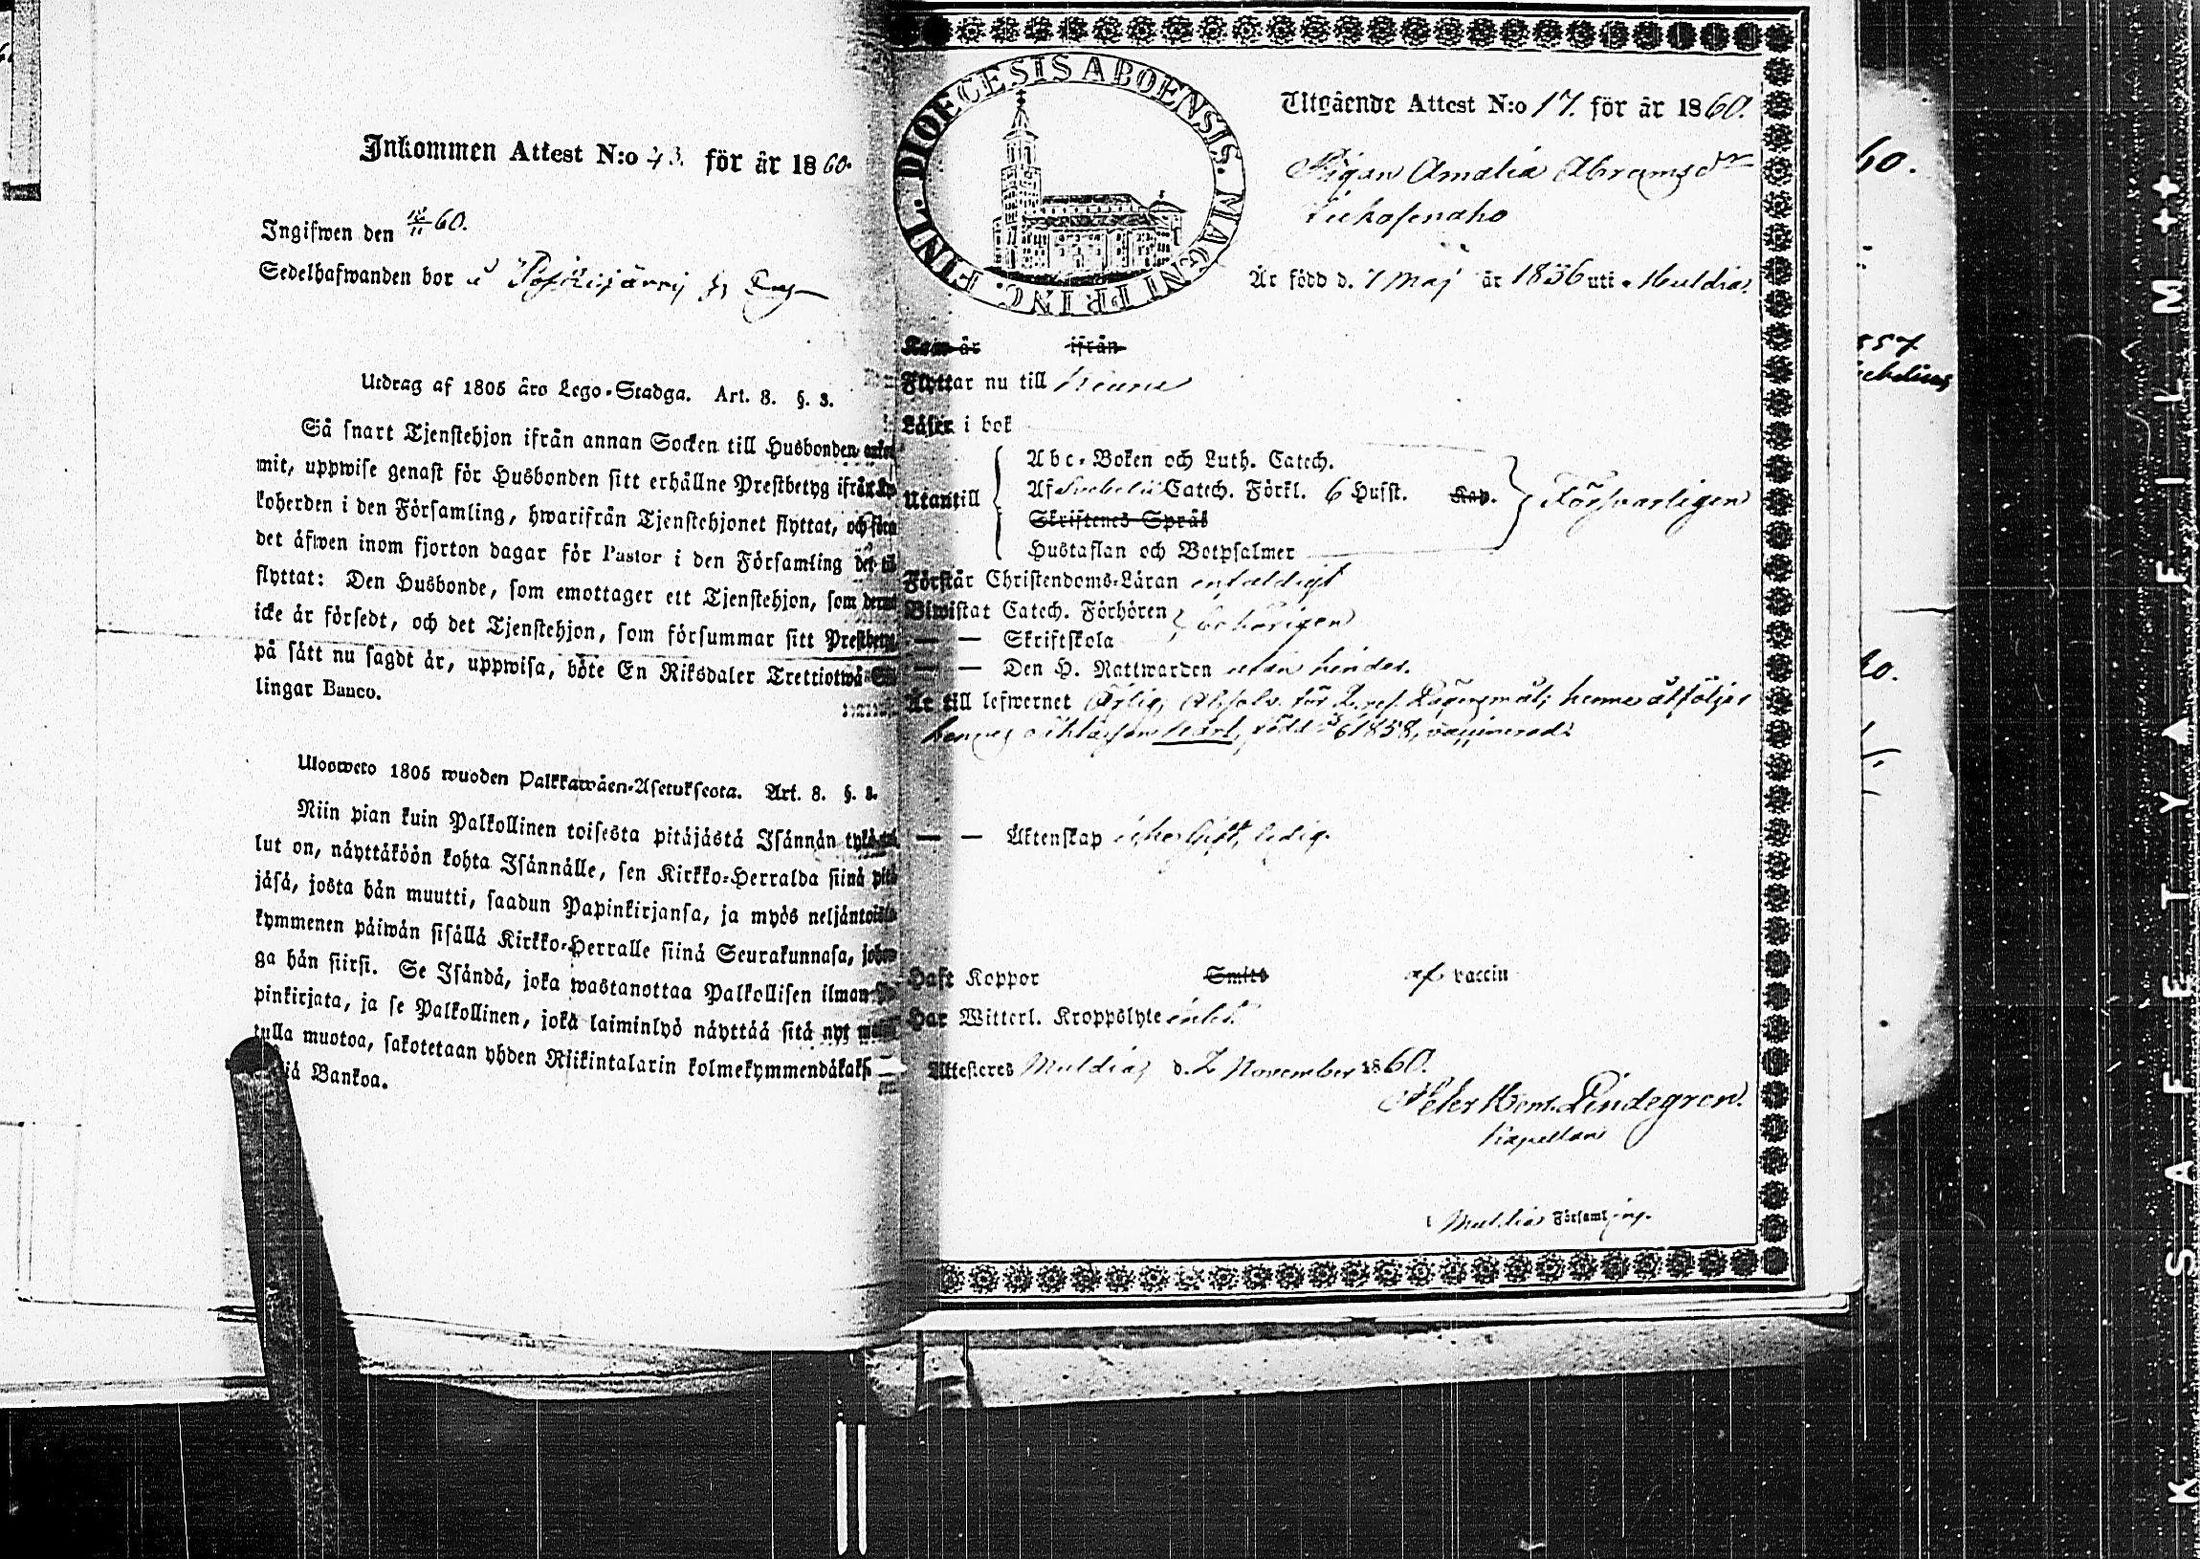 Inkommen Attest N:o 43. för år 1860.
Ingifwen den 18/11 60.
Sedelhafwanden bor å
Utdrag af 1805 års Lego-Stadga. Art. 8. §. 3.
Så snart Tjenstehjon ifrån annan Socken till Husbonden
mit, uppwise genast för Husbonden sitt erhållne Prestbetyg ifrån
koherden i den Församling, hwarifrån Tjenstehjonet flyttat, och
det äfwen inom fjorton dagar för Pastor i den Församling
flyttat: Den Husbonde, som emottager ett Tjenstehjon, som
icke är försedt, och det Tjenstehjon, som försummar sitt Prestbetyg
på sätt nu sagdt är, uppwisa, böte En Riksdaler Trettiotwå
lingar Banco.
Ulosweto 1805 wuoden Palkkawäen-Asetuksesta. Art. 8. §. 3.
Niin pian kuin Palkollinen toisesta pitäjästä Isännän
lut on, näyttäköön kohta Isännälle, sen Kirkko-Herralda siinä
jäsä, josta hän muutti, saadun Papinkirjansa, ja myös neljäntoista
kymmenen päiwän sisällä Kirkko-Herralle siinä Seurakunnasa,
ga hän siirsi. Se Isändä, joka wastanottaa Palkollisen ilman
pinkirjata, ja se Palkollinen, joka laiminlyö näyttää sitä nyt
tulla muotoa, sakotetaan yhden Riikintalarin kolmekymmendäkaksi
Bankoa.
DIOECESIS ABOENSIS. MAGNI PRINC. FINL.
Utgående Attest N:o 17. för år 1860.
Pigan Amalia Abramsdr
Är född d. 7 Maj år 1836 uti Muldia.
Kom år ifrån
Flyttar nu till Keuru
Läser i bok
Abc-Boken och Luth. Catech.
Utantill Af Svebelii Catech. Förkl. 6 Hufst. Kap. Försvarligen
Skriftenes Språk
Hustaflan och Botpsalmer
Förstår Christendoms-Läran enfaldigt
Biwistat Catech. Förhören behörigen
— — Skriftskola
— — Den H. Nattwarden utan hinder.
Är till lefwernet Ärlig, Absolv. för Lägersmål; henne åtföljer
hennes oäkta son Karl, född 1858, vaccinerad.
— — Äktenskap icke gift, ledig.
Haft Koppor Smitto af vaccin
Har Witterl. Kroppslyte intet
Attesteres Muldia d. 2 November 1860.
Peter Lindegren.
Kapellan
i Muldia Församling.
K SAFETY FILM ++